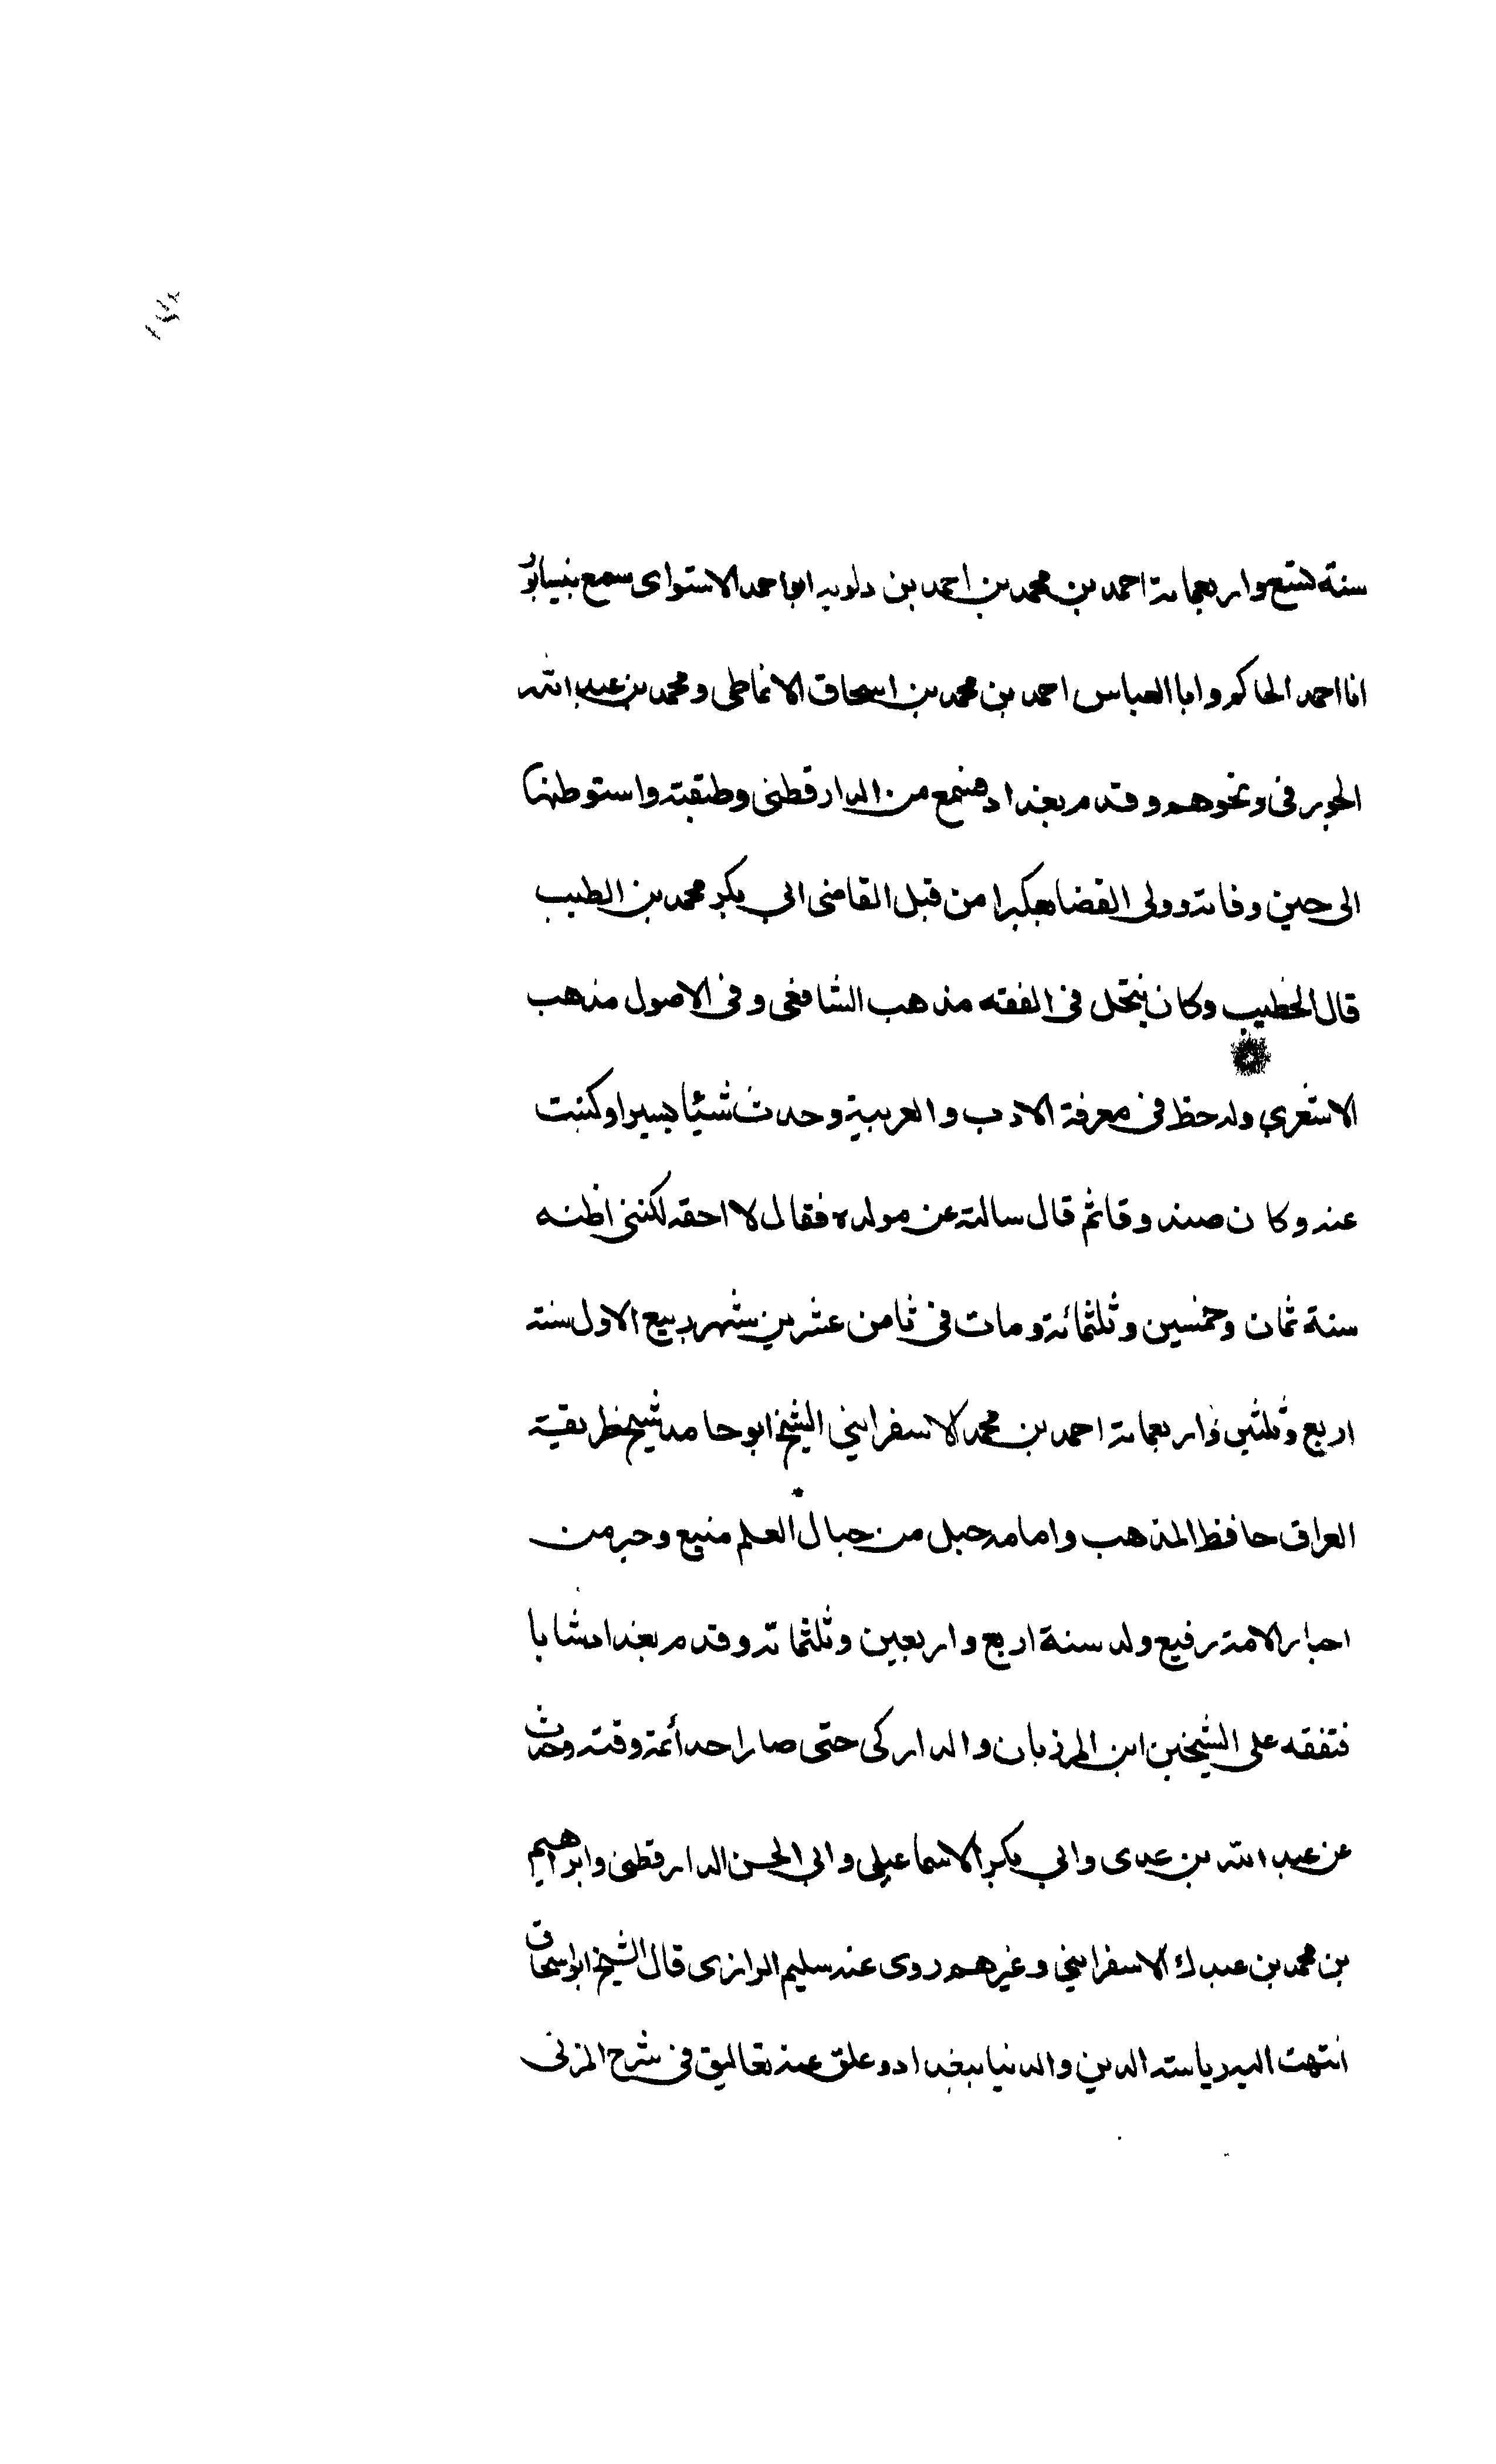 سنة تسع واربعمائة احمد بن محمد بن احمد بن دلويه ابو احمد الاستواى سمع بنيسابور
ابا احمد الحاكم وابا العباس احمد بن محمد بن اسحاق الانماطى ومحمد بن عبد الله
الجورفى ونحوهم وقدم بغداد فسمع من الدارقطنى وطبقته واستوطنها
الى حين وفاته وولى القضا بعكبرا من قبل القاضى ابى بكر محمد بن الطيب
قال الخطيب وكان ينتحل فى الفقه مذهب الشافعى وفى الاصول مذهب
الاشعري وله حظ فى معرفة الادب والعربية وحدث شيئا يسيرا وكتبت
عنه وكان صدوقا ثم قال سالته عن مولده فقال لا احقه لكننى اظنه
سنة ثمان وخمسين وثلثمائة ومات فى ثامن عشرين شهر ربيع الاول سنة
اربع وثلثين واربعمائة احمد بن محمد الاسفراينى الشيخ ابو حامد شيخ طريقة
العراق حافظ المذهب وامامه جبل من جبال العلم منيع وحبر من
احبار الامة رفيع ولد سنة اربع واربعين وثلثمائة وقدم بغداد شابا
فتفقه على الشيخين ابن المرزبان والداركى حتى صار احد أئمة وقته وحدث
عن عبد الله بن عدى وابي بكر الاسماعيلى وابى الحسن الدارقطنى وابراهيم
بن محمد بن عبدك الاسفراينى وغيرهم روى عنه سليم الرازى قال الشيخ ابو اسحاق
انتهت اليه رياسة الدين والدنيا ببغداد وعلق عنه تعاليق فى شرح المزنى